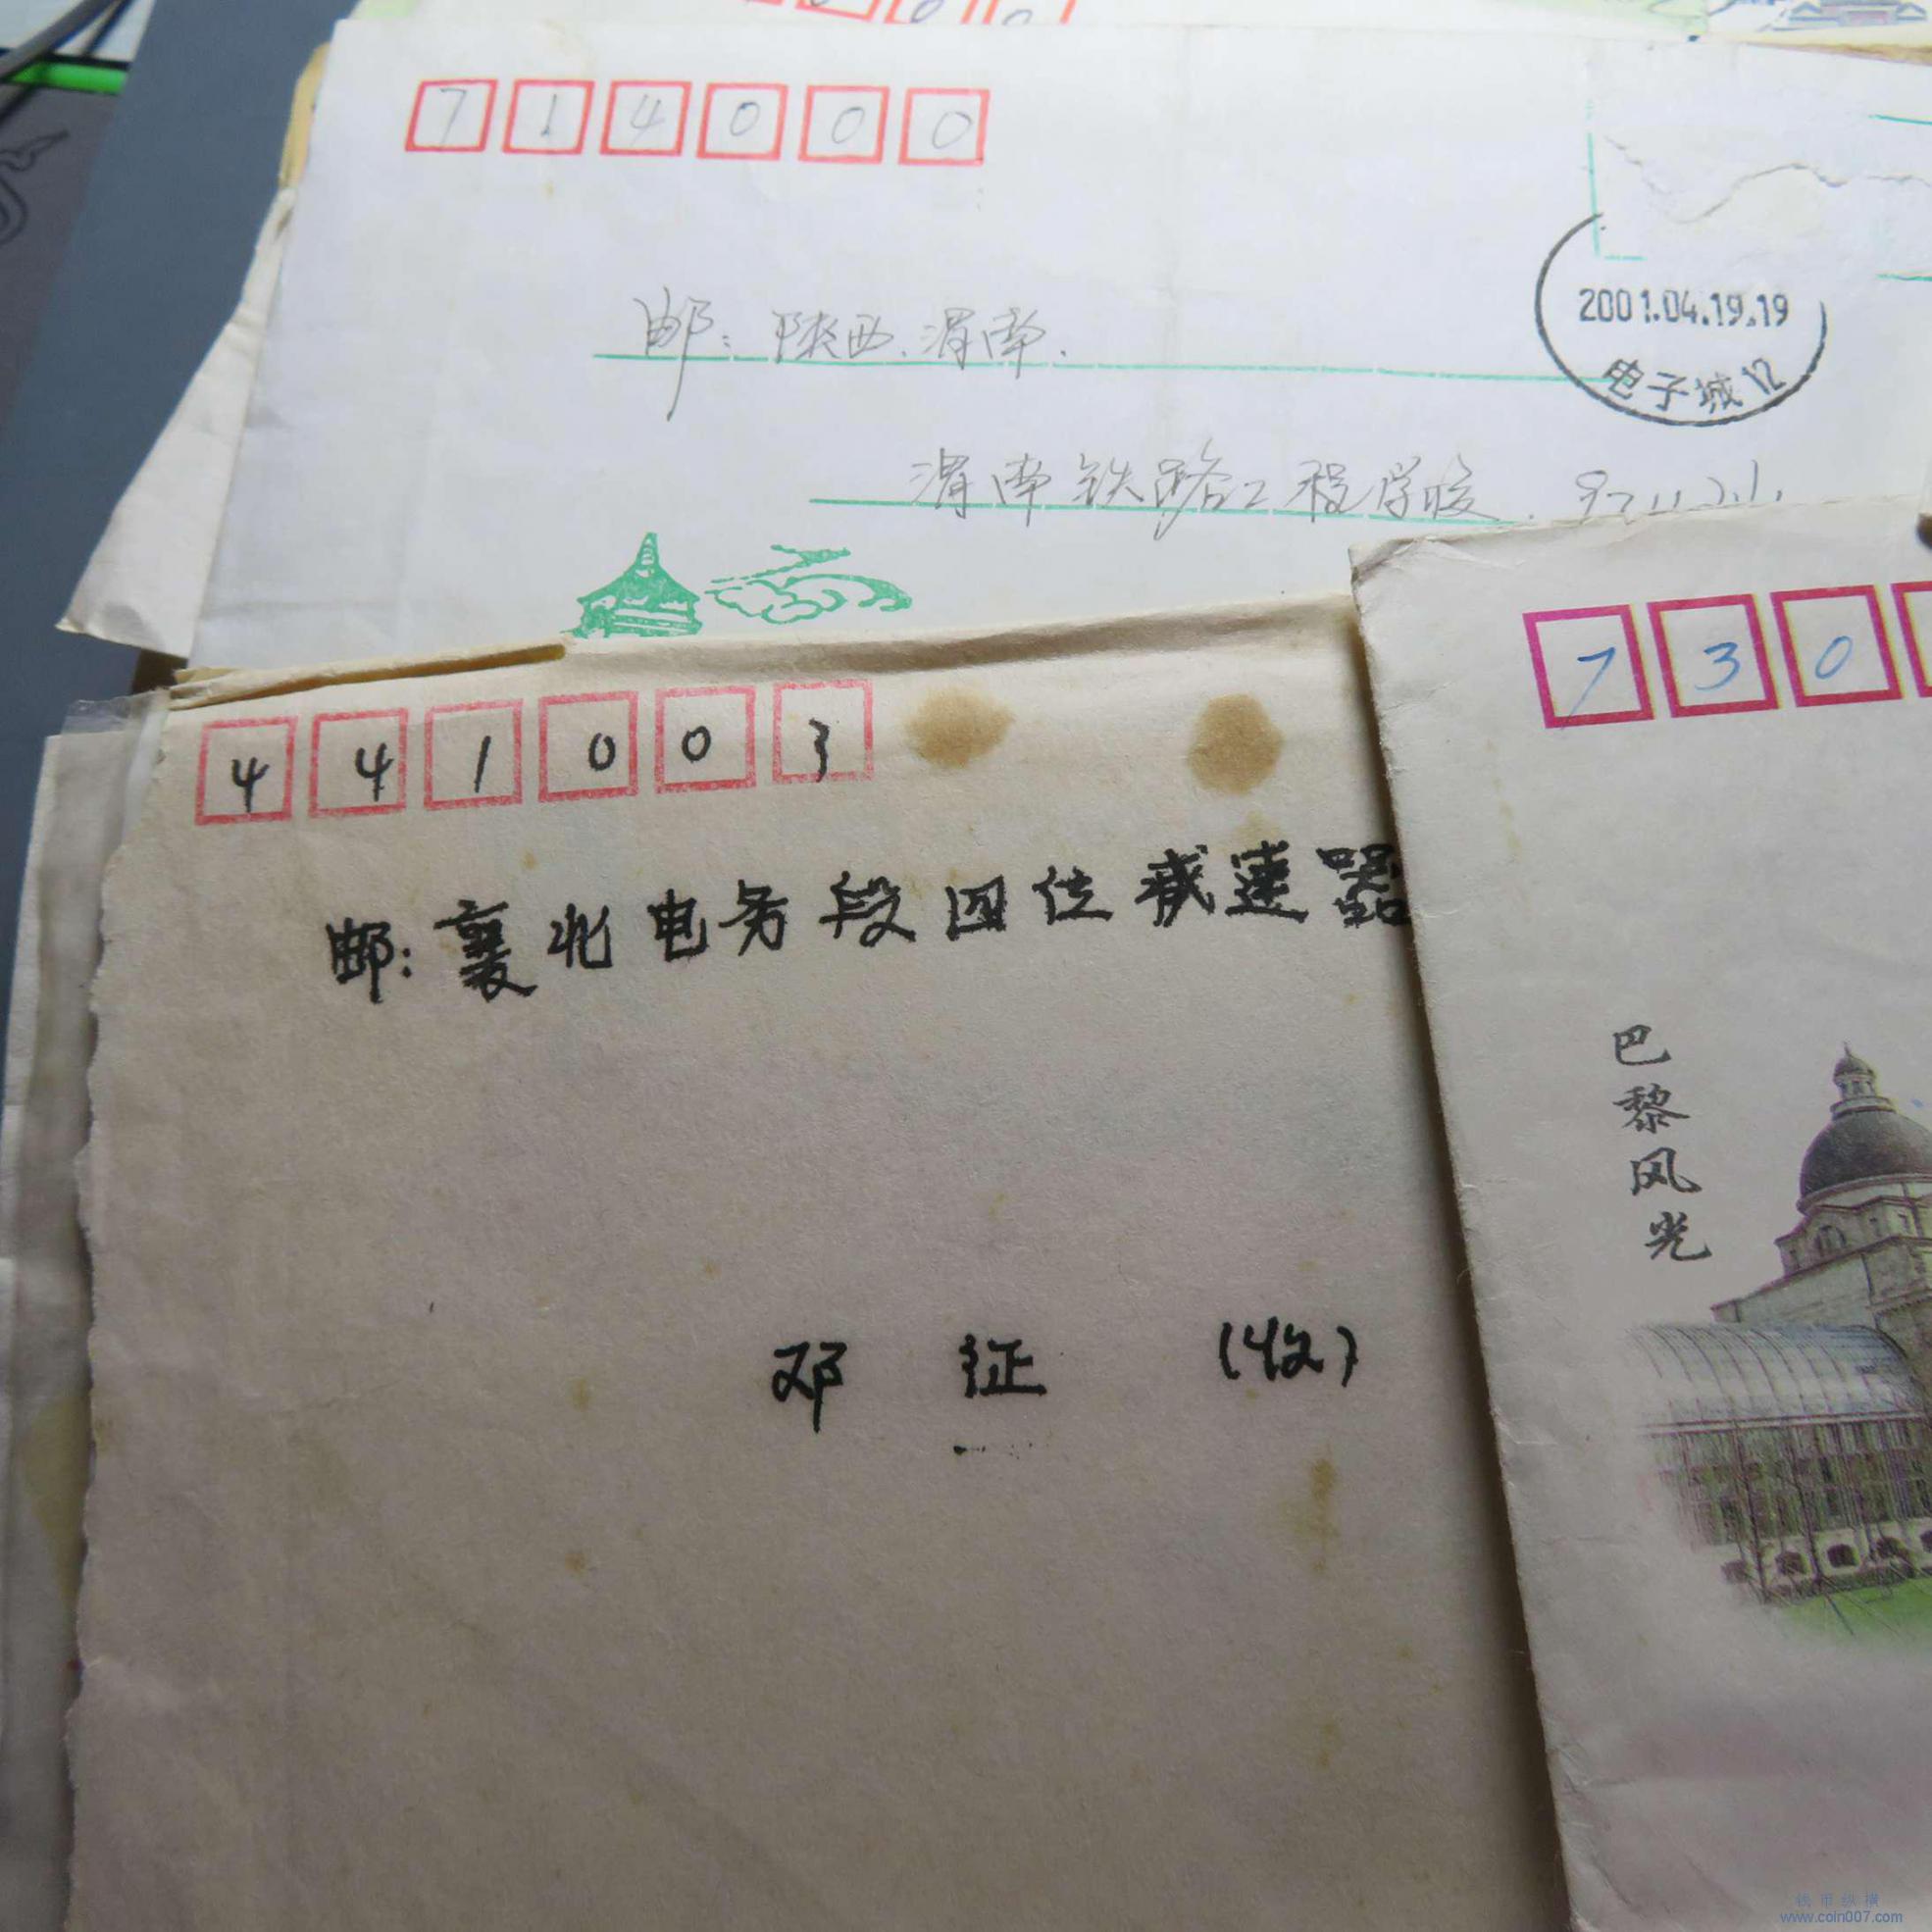 714000
邮：陕西.渭南.
2001.04.19.19
电子城12
渭南铁路工程学校.
441003
邮：襄北电务段四位减速器
邓 征 （收）
730
巴黎风光
钱币纵横
www.coin007.com